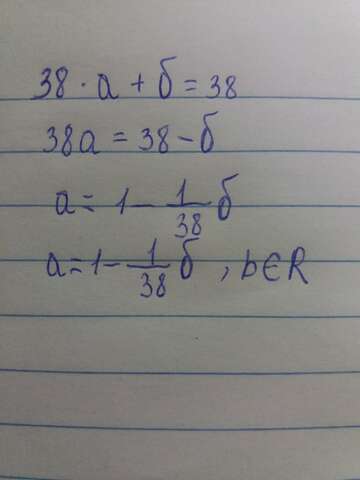 38 · а + б = 38
38а = 38 - б
а = 1 - 1/38 б
а = 1 - 1/38 б , b ∈ R